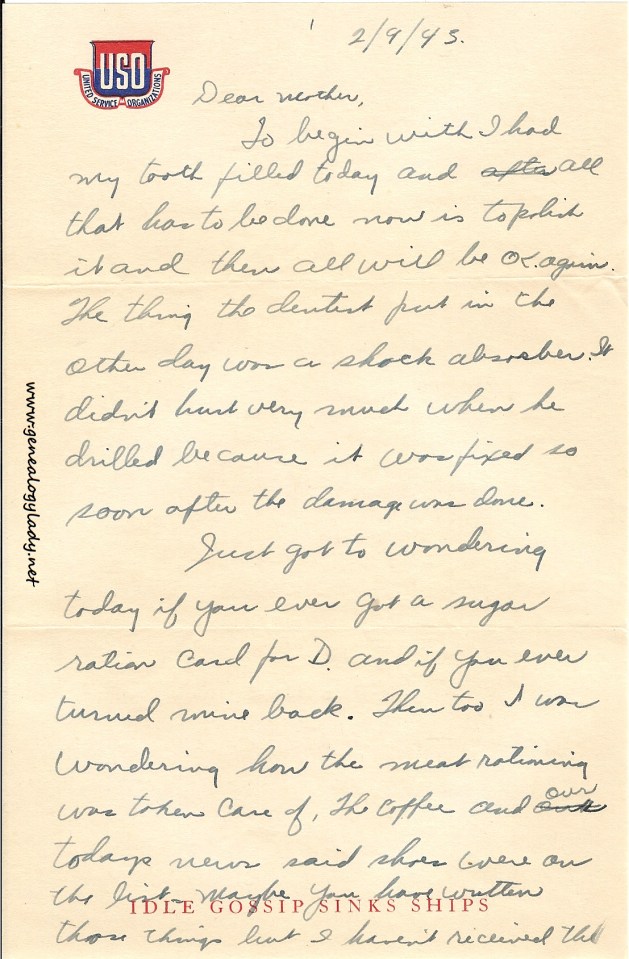 2/9/43.
USO
UNITED SERVICE ORGANIZATIONS
Dear Mother,
To begin with I had
my tooth filled today and after all
that has to be done now is to polish
it and then all will be OK. again.
The thing the dentist put in the
other day was a shock absorber. It
didn't hurt very much when he
drilled because it was fixed so
soon after the damage was done.
Just got to wondering
today if you ever got a sugar
ration card for D. and if you ever
turned mine back. Then too I was
wondering how the meat rationing
was taken care of, the coffee and our
todays news said shoes were on
the list. Maybe you have written
those things but I haven't received the
IDLE GOSSIP SINKS SHIPS
www.genealogylady.net